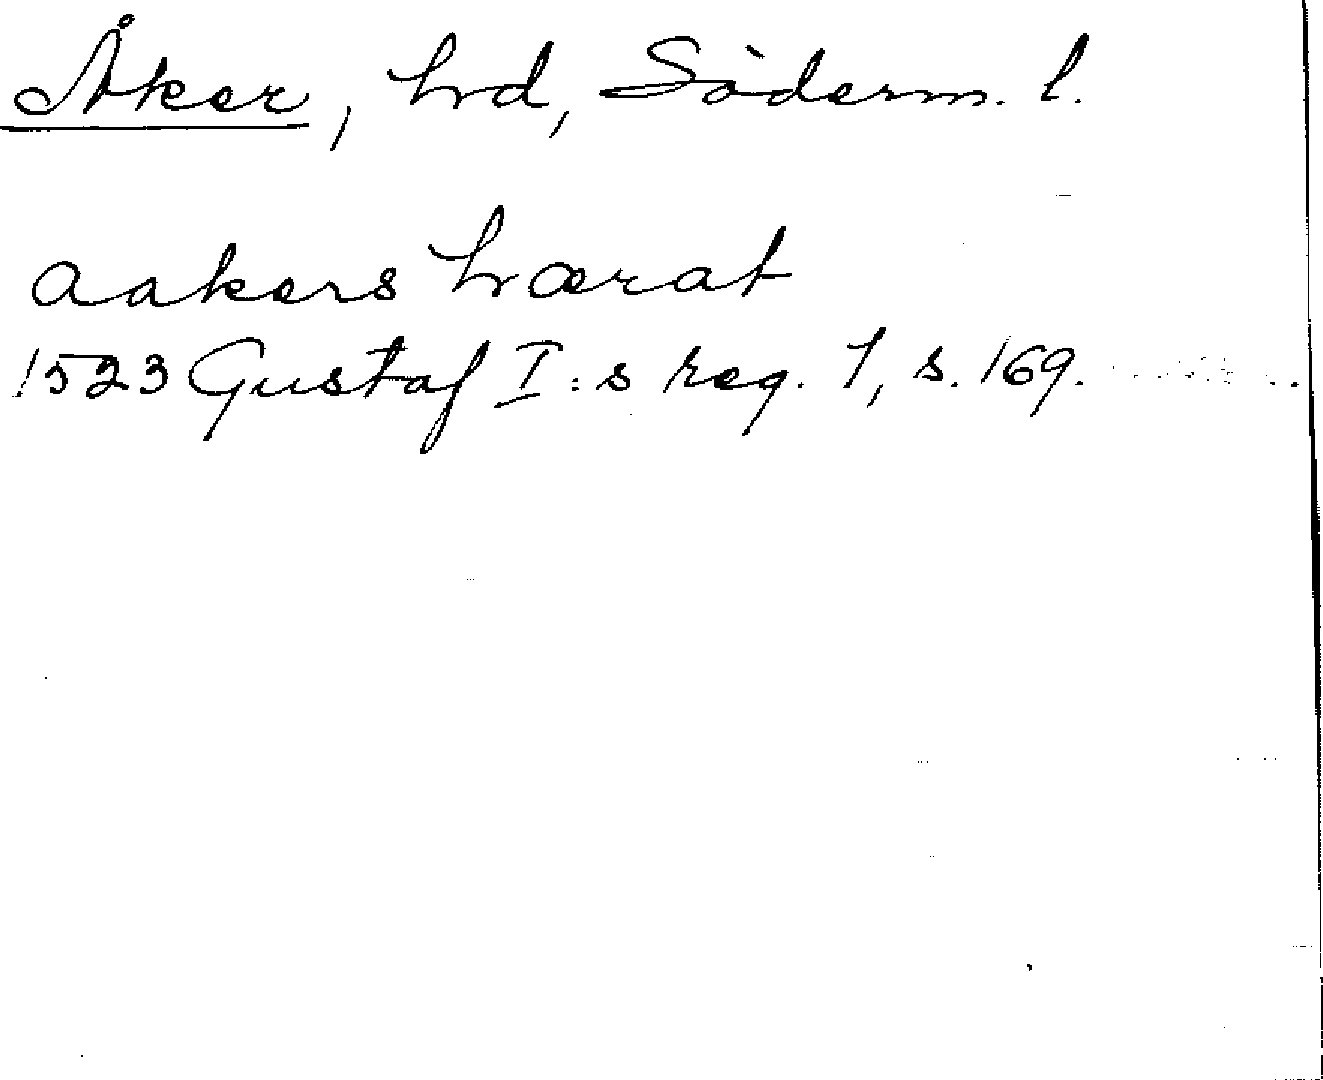 Åker, hd, Söderm. l.
aakers hærat
1523 Gustaf I:s reg. 1, s. 169.